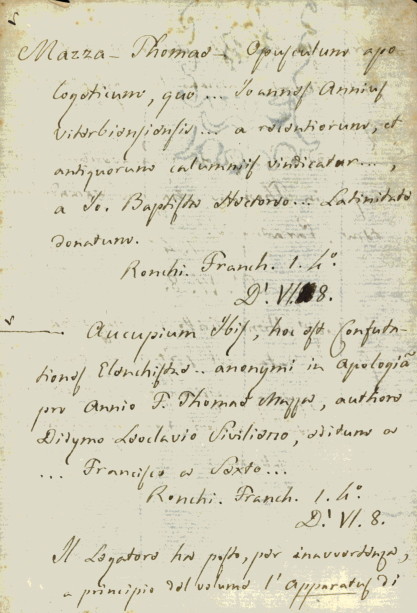 Mazza - Thomas - Opusculum apo-
logeticum, quo ... Joannes Annius
Viterbiensiensis ... a recentiorum, et
antiquorum calumniis vindicatur ...,
a Jo. Baptista ... Latinitate
donatum.
Ronchi. Franch. 1. 4º.
D! VI. 8.
Aucupium Ibis, hoc est Confuta-
tiones Elenchistae .. anonymi in Apologiã
pro Annio F. Thomae Mazza, authore
Didymo Leoclavio Siviliasio, editum a
... Francisco a Sexto ...
Ronchi. Franch. 1. 4º.
D! VI. 8.
Il Legatore ha posto, per inavvertenza,
a principio del volume l'Apparatus di